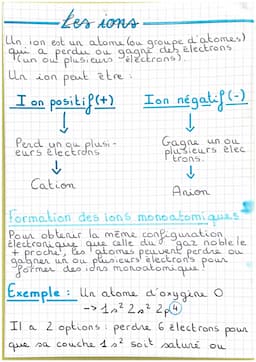 Les ions
Un ion est un atome (ou groupe d'atomes)
qui a perdu ou gagné des électrons
(un ou plusieurs électrons).
Un ion peut être :
Ion positif (+) Ion négatif (-)
↓ ↓
Perd un ou plusi- Gagne un ou
eurs électrons plusieurs élec
trons.
↓ ↓
Cation Anion
Formation des ions monoatomiques
Pour obtenir la même configuration
électronique que celle du gaz noble le
+ proche, les atomes peuvent perdre ou
gagner un ou plusieurs électrons pour
former des ions monoatomique!
Exemple : Un atome d'oxygène O
-> 1s² 2s² 2p4
Il a 2 options : perdre 6 électrons pour
que sa couche 1s² soit saturé ou